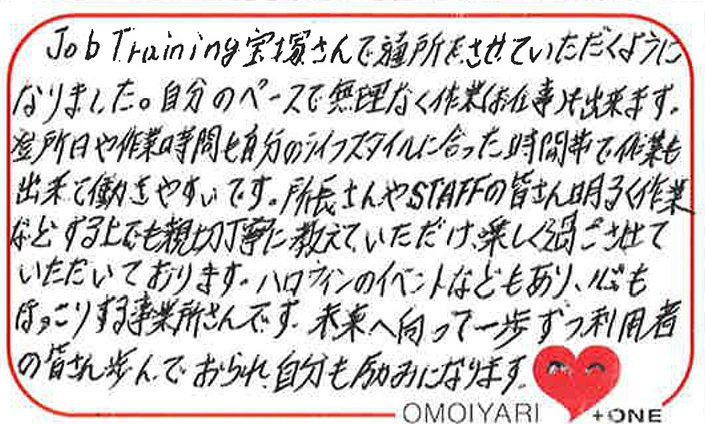 Job Training宝塚さんで通所をさせていただくように
なりました。自分のペースで無理なく作業(お仕事)も出来ます。
登所日や作業時間も自分のライフスタイルに合った時間帯で作業も
出来て働きやすいです。所長さんやSTAFFの皆さん明るく作業
などする上でも親切丁寧に教えていただけ、楽しく過ごさせて
いただいております。ハロウィンのイベントなどもあり、心も
ほっこりする事業所さんです。未来へ向って一歩ずつ利用者
の皆さん歩んでおられ、自分も励みになります。
OMOIYARI +ONE